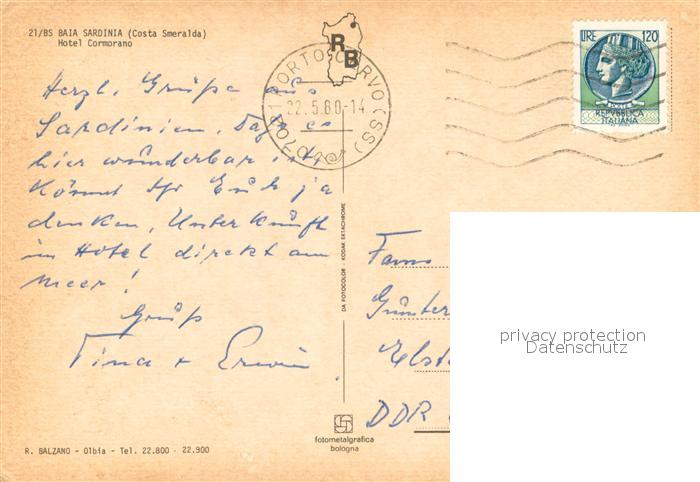 21/BS BAIA SARDINIA (Costa Smeralda)
Hotel Cormorano
RB
07021 PORTO CERVO (SS)
22.5.80-14
LIRE 120
POSTE
REPVBBLICA
ITALIANA
Herzl. Grüße aus
Sardinien. Daß es
hier wunderbar ist,
könnt Ihr Euch ja
denken, Unterkunft
im Hotel direkt am
Meer!
Gruß
Tina + Erwin.
DA FOTOCOLOR - KODAK EKTACHROME
Fam.
Günter
Elst
DDR
privacy protection
Datenschutz
fotometalgrafica
bologna
R. BALZANO - Olbia - Tel. 22.800 - 22.900